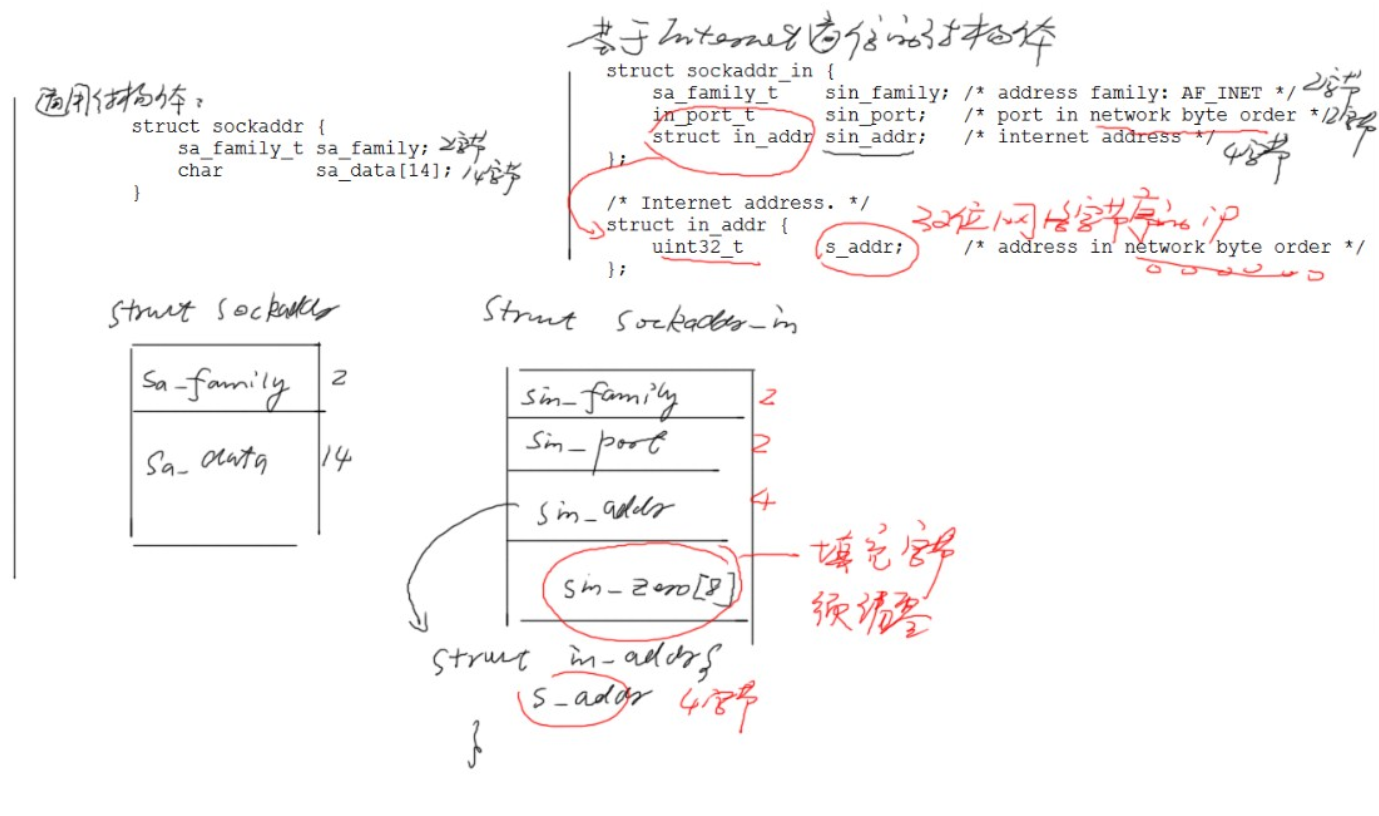 通用结构体:
struct sockaddr {
sa_family_t sa_family; 2字节
char sa_data[14]; 14字节
}
基于Internet通信的结构体
struct sockaddr_in {
sa_family_t sin_family; /* address family: AF_INET */ 2字节
in_port_t sin_port; /* port in network byte order */ 2字节
struct in_addr sin_addr; /* internet address */ 4字节
};
/* Internet address. */
struct in_addr {
uint32_t s_addr; /* address in network byte order */
};
32位网络字节序的ip
struct sockaddr
sa_family 2
sa_data 14
struct sockaddr_in
sin_family 2
sin_port 2
sin_addr 4
sin_zero[8]
填充字节
须清零
struct in_addr{
s_addr 4字节
}